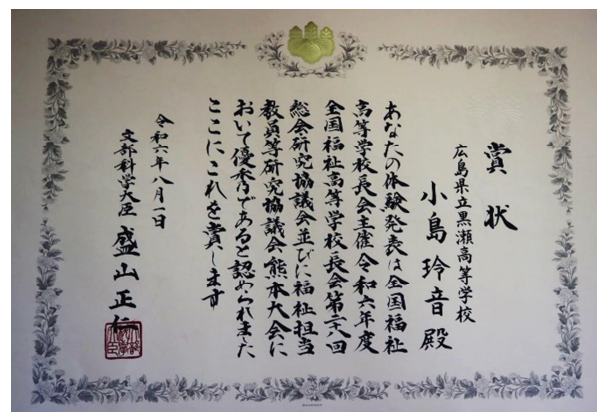 賞状
広島県立黒瀬高等学校
小島玲音殿
あなたの体験発表は全国福祉
高等学校長会主催令和六年度
全国福祉高等学校長会第二八回
総会研究協議会並びに福祉担当
教員等研究協議会熊本大会に
おいて優秀であると認められました
ここにこれを賞します
令和六年八月一日
文部科学大臣 盛山正仁